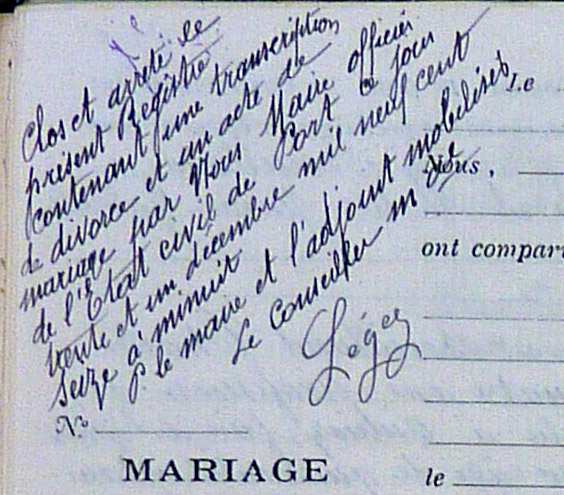 Clos et arrêté le
présent Registre
contenant une transcription
de divorce et un acte de
mariage par Nous Maire officier
de l'Etat civil de Port ce jour
trente et un décembre mil neuf cent
seize à minuit
P le maire et l'adjoint mobilisés
Le Conseiller m
Légey
Le
Nous,
ont compar
N°
MARIAGE
le